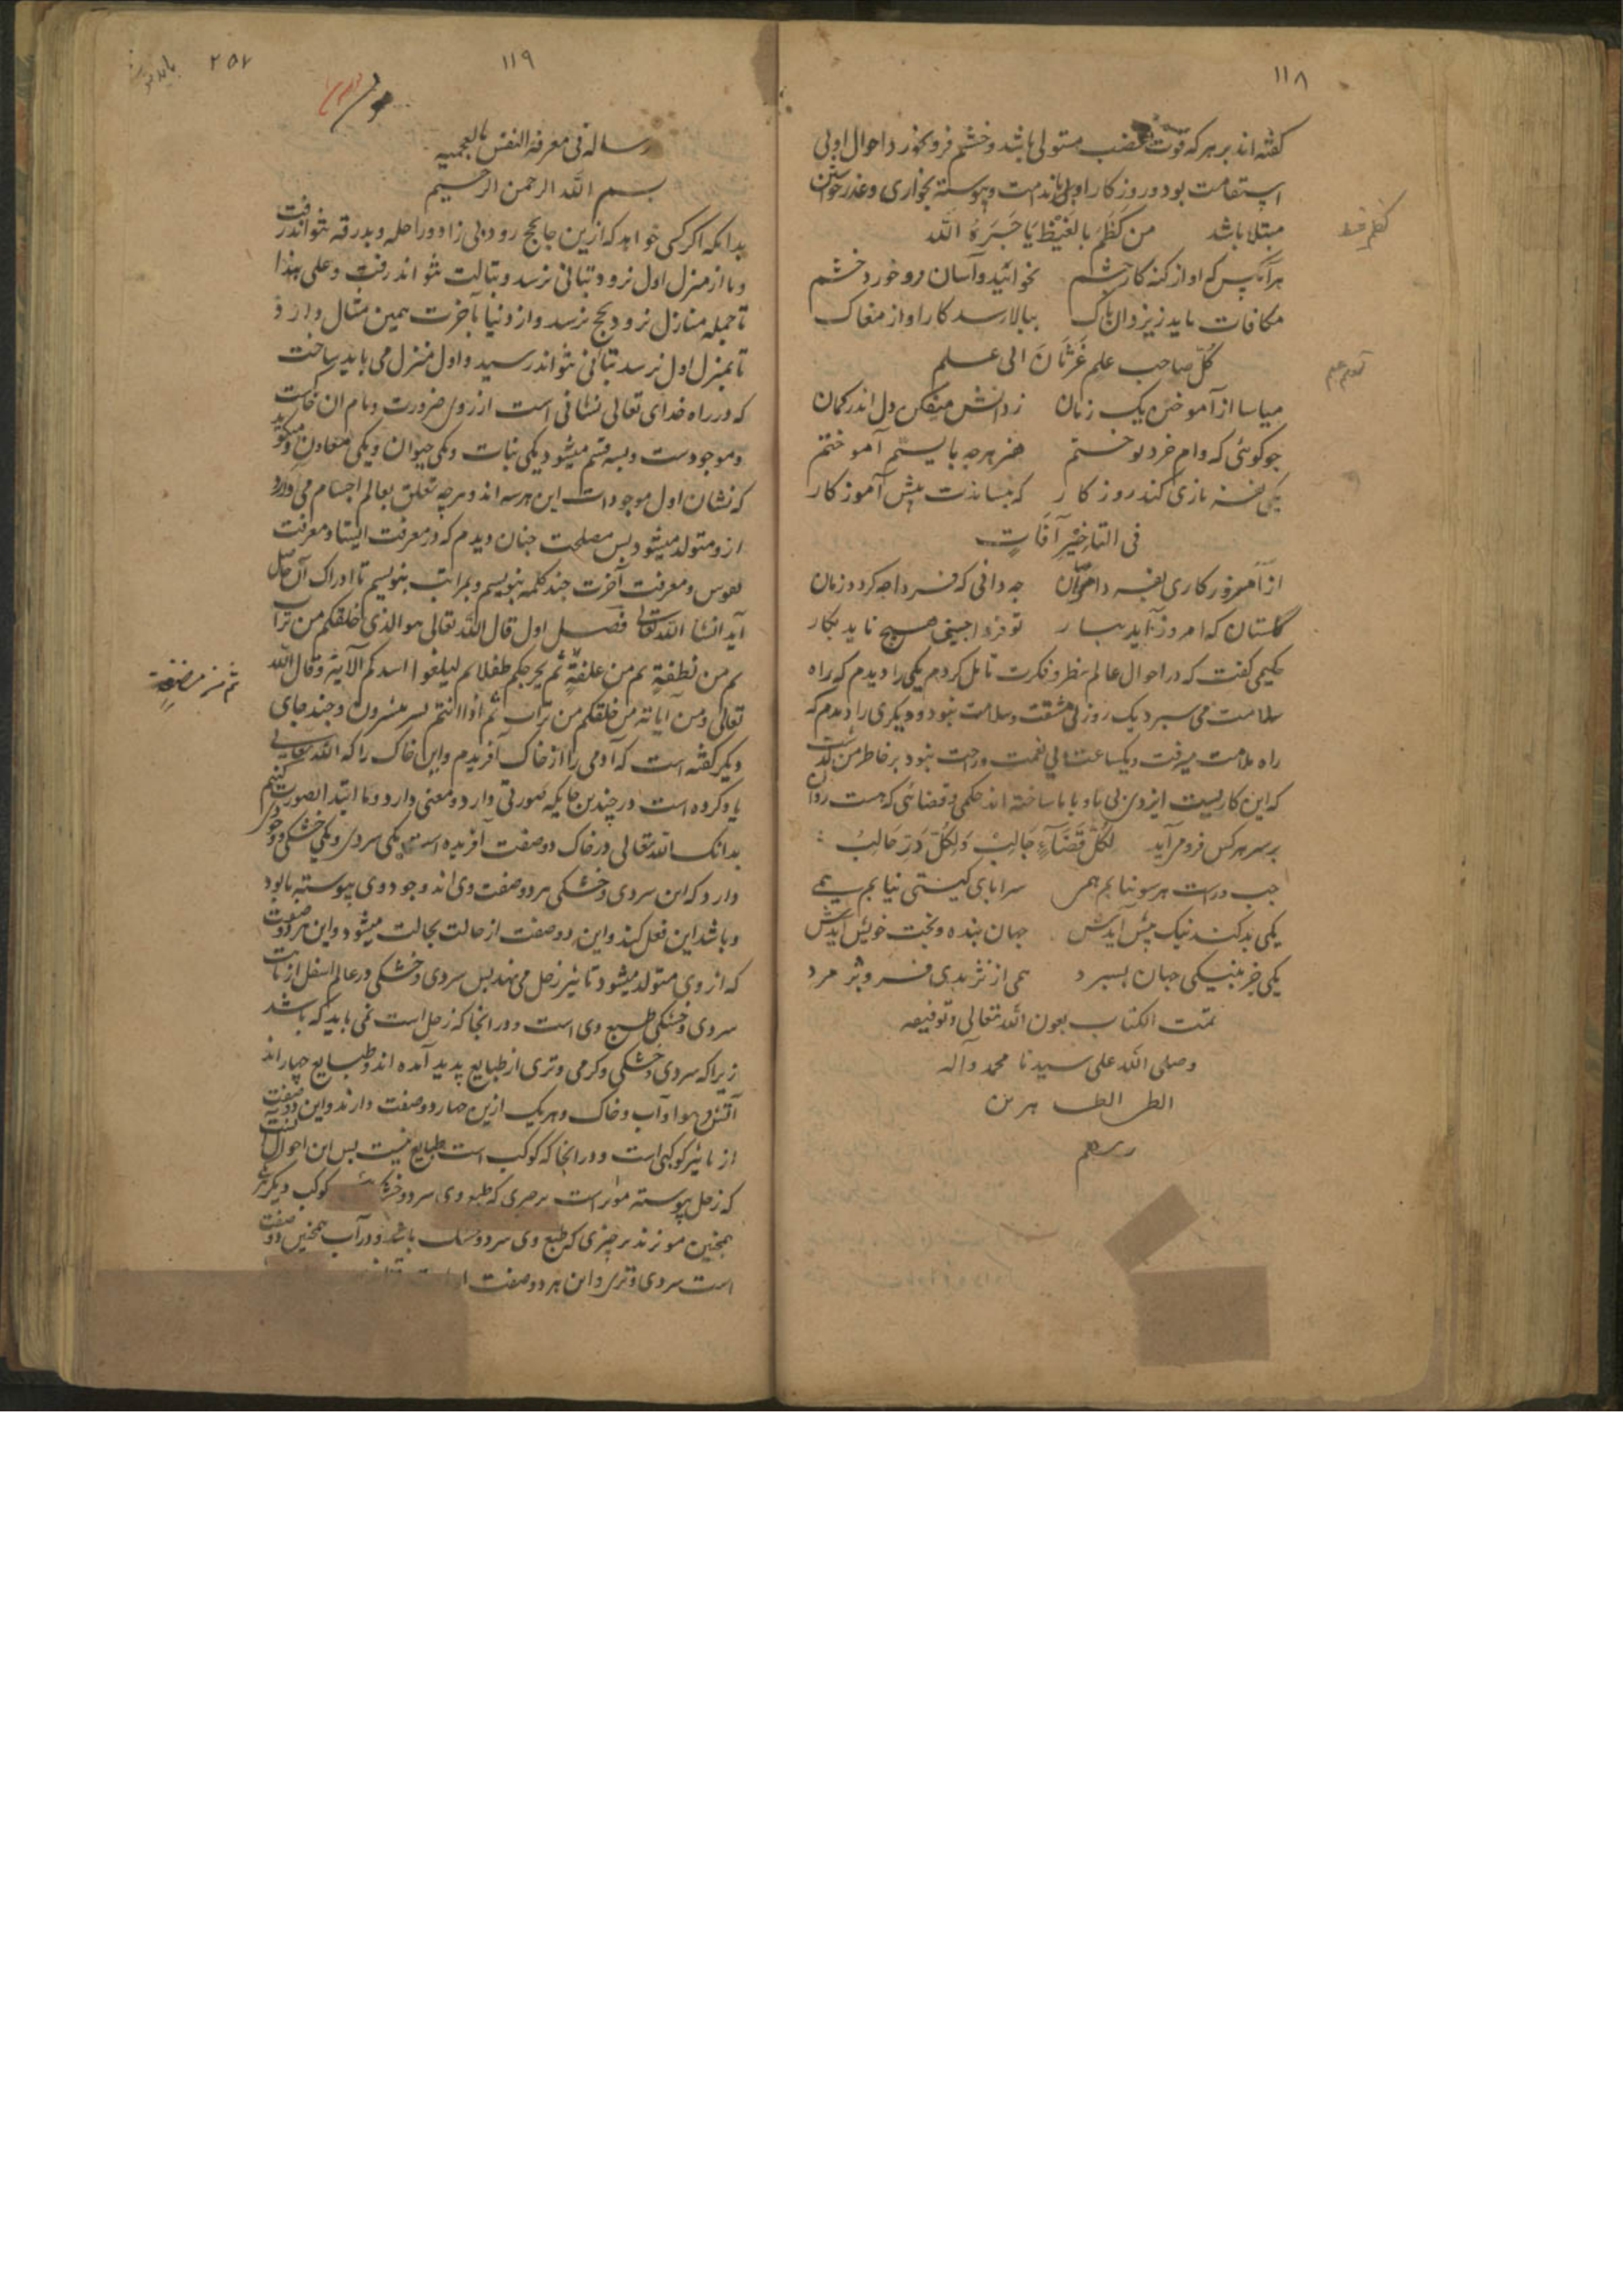 ۱۱۸
کفته اند بر هر که قوت غضب مستولی باشد و خشم فرو نخورد احوال او بی
استقامت بود و روزکار او با ندامت و پیوسته بخواری و عذر خواستن
مبتلا باشد من کظم بالغیظ یا جبره الله
کظم غیظ
هر آنکس که او از کنه کار خشم نخوابید و آسان فرو خورد خشم
مکافات یابد ز یزدان پاک ببالا رسد کار او از مغاک
کل صاحب علم غرثان الی علم
میاسا از آموختن یک زمان ز دانش میفکن دل اندر کمان
چو کوئی که وام خرد توختم همه هر چه بایستم آموختم
یکی نغز بازی کند روزکار که بنشاندت پیش آموزکار
فی التاخیر آفات
از امروز کاری بفردا ممان چه دانی که فردا چه کردد زمان
کلستان که امروز آید ببار تو فردا چینی هیچ ناید بکار
حکیمی کفت که در احوال عالم بنظر و فکرت تامل کردم یکی را دیدم که راه
سلامت می سپرد یک روز بی مشقت و سلامت نبود و دیکری را دیدم که
راه ملامت میرفت و یکساعت بی نعمت و راحت نبود بر خاطر من کذشت
که این کاریست ایزدی بی ما و با ما ساخته اند حکمی و قضائی که هست روان
بر سر هر کس فرو می آید لکل قضاء جالب ولکل در حالب
چپ و راست هر سو بتابم همی سر و پای کیتی نیابم همی
یکی بد کند نیک پیش آیدش جهان بنده و بخت خویش آیدش
یکی جز بنیکی جهان نسپرد همی از نژندی فرو پژمرد
تمت الکتاب بعون الله تعالی و توفیقه
وصلی الله علی سیدنا محمد وآله
۱۱۹
۲۵۷
رساله فی معرفة النفس بالعجمیه
بسم الله الرحمن الرحیم
بدانکه اکر کسی خواهد که ازین جا بحج رود بی زاد و راحله و بدرقه نتواند رفت
و تا از منزل اول نرود بثانی نرسد و بثالث نتواند رفت و علی هذا
تا جمله منازل نرود بحج نرسد و از دنیا بآخرت همین مثال دارد
تا بمنزل اول نرسد بثانی نتواند رسید و اول منزل می باید ساخت
که در راه خدای تعالی نشانی است از روی ضرورت و نام ان خاکست
و موجودست و بسه قسم میشود یکی نبات و یکی حیوان و یکی معادن و میکوید
که نشان اول موجودات این هر سه اند و هر چه تعلق بعالم اجسام می دارد
ازو متولد میشود پس مصلحت چنان دیدم که در معرفت ایشان و معرفت
نفوس و معرفت آخرت چند کلمه بنویسم و بمراتب بنویسم تا ادراک آن حاصل
آید انشا الله تعالی فصل اول قال الله تعالی هو الذی خلقکم من تراب
ثم من نطفة ثم من علقة ثم یخرجکم طفلا ثم لیبلغوا اشدکم الآیة و قال الله
ثم من مضغة
تعالی و من آیاته من خلقکم من تراب ثم اذا انتم بشر تنتشرون و چند جای
دیکر کفته است که آدمی را از خاک آفریدم و این خاک را که الله تعالی
یاد کرده است در چندین جایکه صورتی دارد و معنی دارد و ما ابتدا بصورت کنیم
بدانک الله تعالی در خاک دو صفت آفریده است یکی سردی و یکی خشکی وجود
دارد که این سردی و خشکی هر دو صفت وی اند و جود وی پیوسته تا بود
و باشد این فعل کند و این دو صفت از حالت بحالت میشود و این هر دو صفت
که از وی متولد میشود تاثیر زحل می نهد پس سردی و خشکی در عالم اسفل از تاثیر
سردی و خشکی طبع وی است و در انجا که زحل است نمی باید که باشد
زیرا که سردی و خشکی و کرمی و تری از طبایع پدید آمده اند و طبایع چهار اند
آتش و هوا و آب و خاک و هر یک ازین چهار دو صفت دارند و این دو صفت
از تاثیر کوکبی است و در انجا که کوکب است طبایع نیست پس این احوال
که زحل پیوسته موثر است بر چیزی که طبع وی سرد و خشک کوکب دیکر
همچنین موثرند بر چیزی که طبع وی سرد و خشک باشد و در آب همچنین دو صفت
است سردی و تری و این هر دو صفت